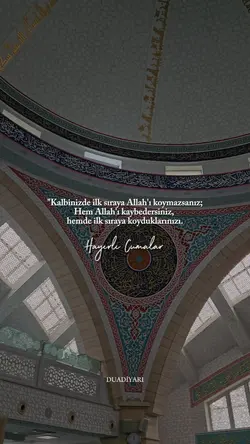 "Kalbinizde ilk sıraya Allah'ı koymazsanız;
Hem Allah'ı kaybedersiniz,
hemde ilk sıraya koyduklarınızı.
Hayırlı Cumalar
DUADİYARI